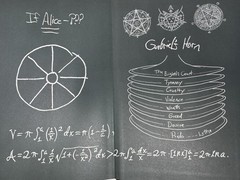 If Alice
Gabriel's Horn
Tyranny
Cruelty
Violence
Wrath
Greed
Desire
V = π∫₁ᵃ(1/x)²dx = π(1-1/a),
A = 2π∫₁ᵃ 1/x √(1+(-1/x²)²)dx > 2π∫₁ᵃ dx/x = 2π·[ln x]₁ᵃ = 2π ln a.